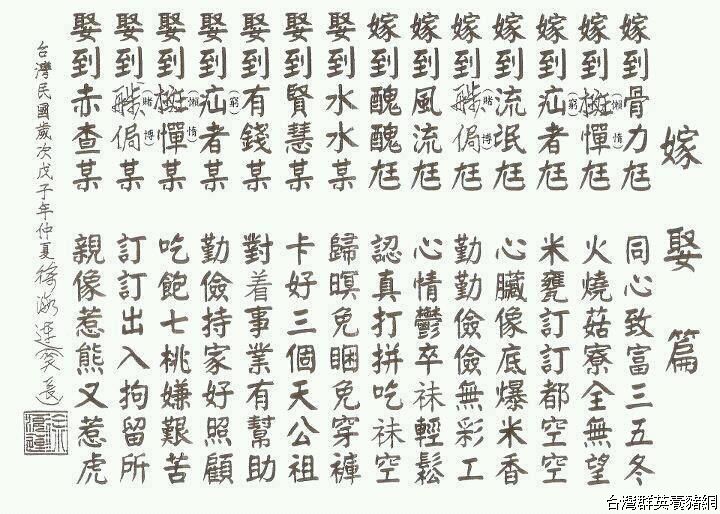 嫁娶篇
嫁到骨力尪 同心致富三五冬
嫁到憚(懶惰)尪 火燒菇寮全無望
嫁到疝者(窮)尪 米甕訂訂都空空
嫁到流氓尪 心臟像底爆米香
嫁到侷(賭博)尪 勤勤儉儉無彩工
嫁到風流尪 心情鬱卒袜輕鬆
嫁到醜醜尪 認真打拼吃袜空
娶到水水某 歸暝免睏免穿褲
娶到賢慧某 卡好三個天公祖
娶到有錢某 對着事業有幫助
娶到疝者(窮)某 勤儉持家好照顧
娶到憚(懶惰)某 吃飽七桃嫌艱苦
娶到侷(賭博)某 訂訂出入拘留所
娶到赤查某 親像惹熊又惹虎
台灣民國歲次戊子年仲夏徐
台灣群英養豬網